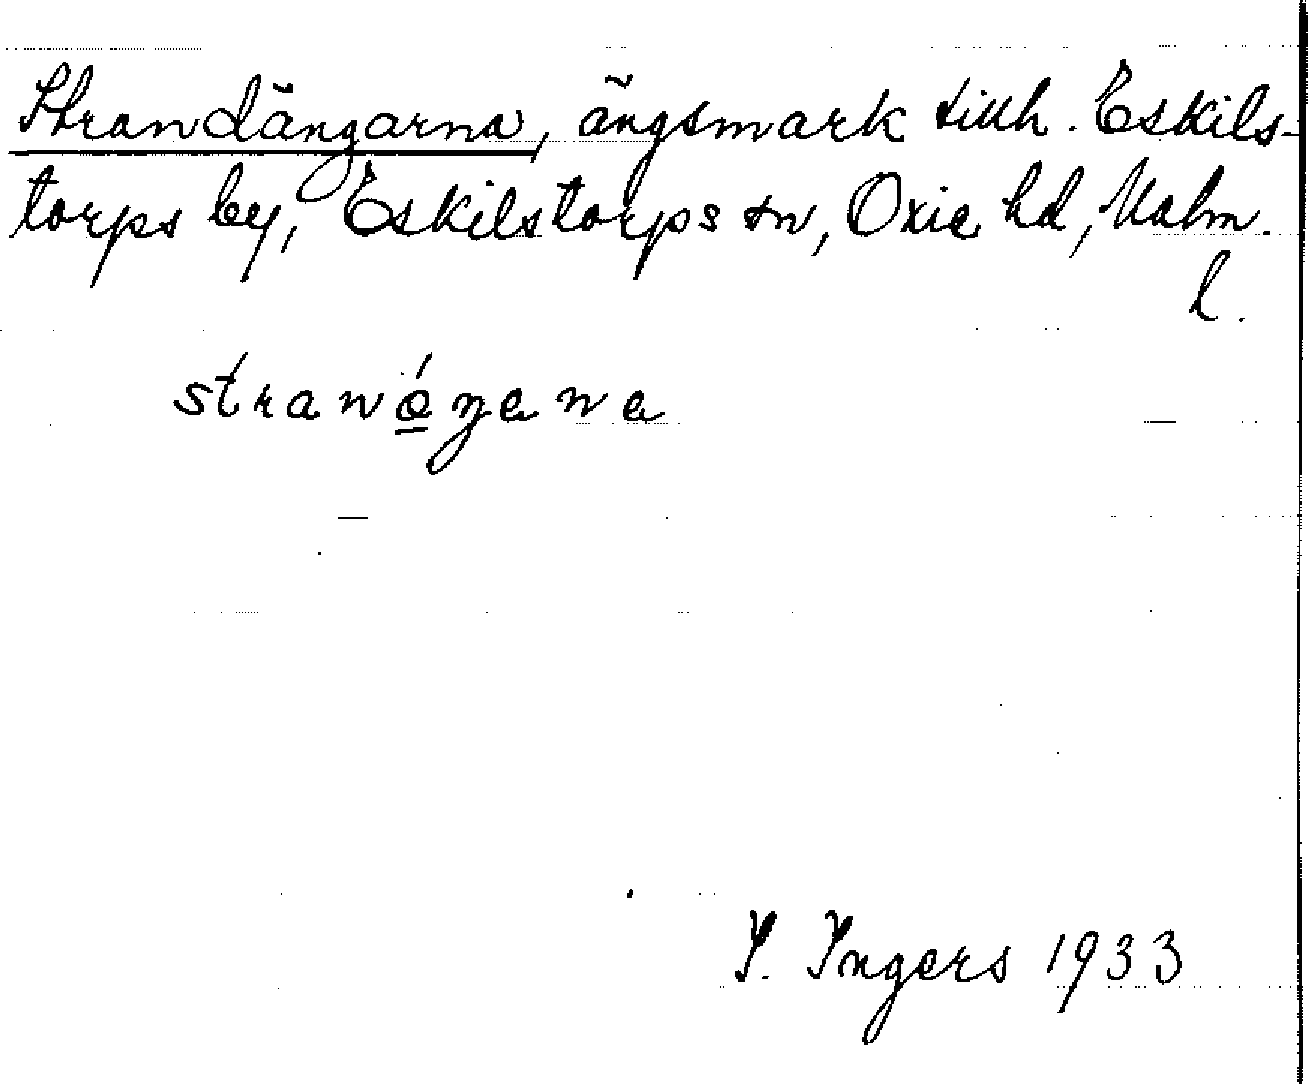 Strandängarna, ängsmark tillh. Eskils-
torps by, Eskilstorps sn, Oxie hd, Malm.
l.
I. Ingers 1933